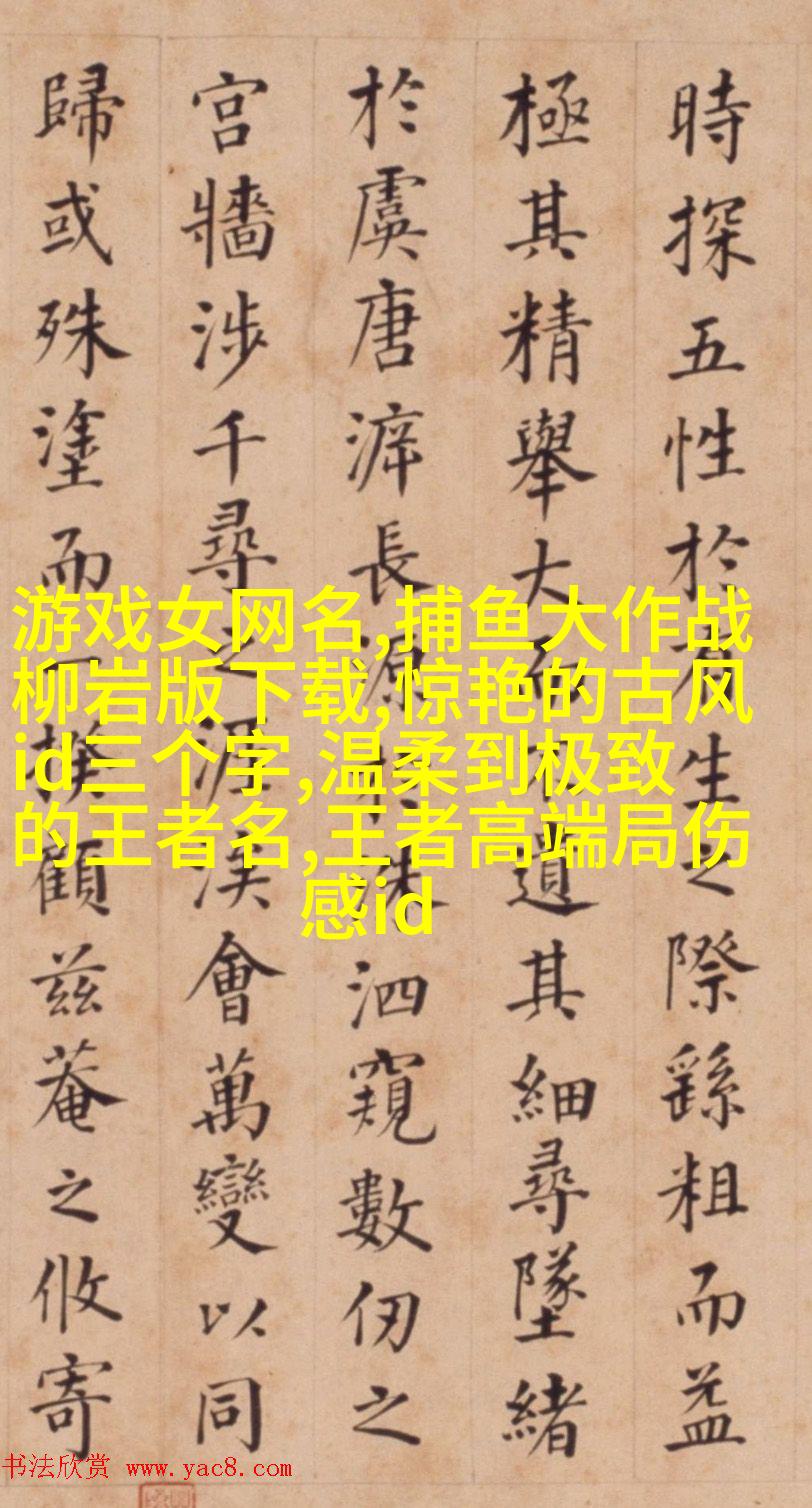 時探五性於有生之際繇粗而益
極其精舉大而不遺其細尋墜緒
於虞唐長源於洙泗窺數仞之
宮牆涉千尋之涯涘會萬變以同
歸或殊塗而一揆顧茲菴之攸寄
游戏女网名,捕鱼大作战
柳岩版下载,惊艳的古风
id三个字,温柔到极致
的王者名,王者高端局伤
感id
书法欣赏 www.yac8.com